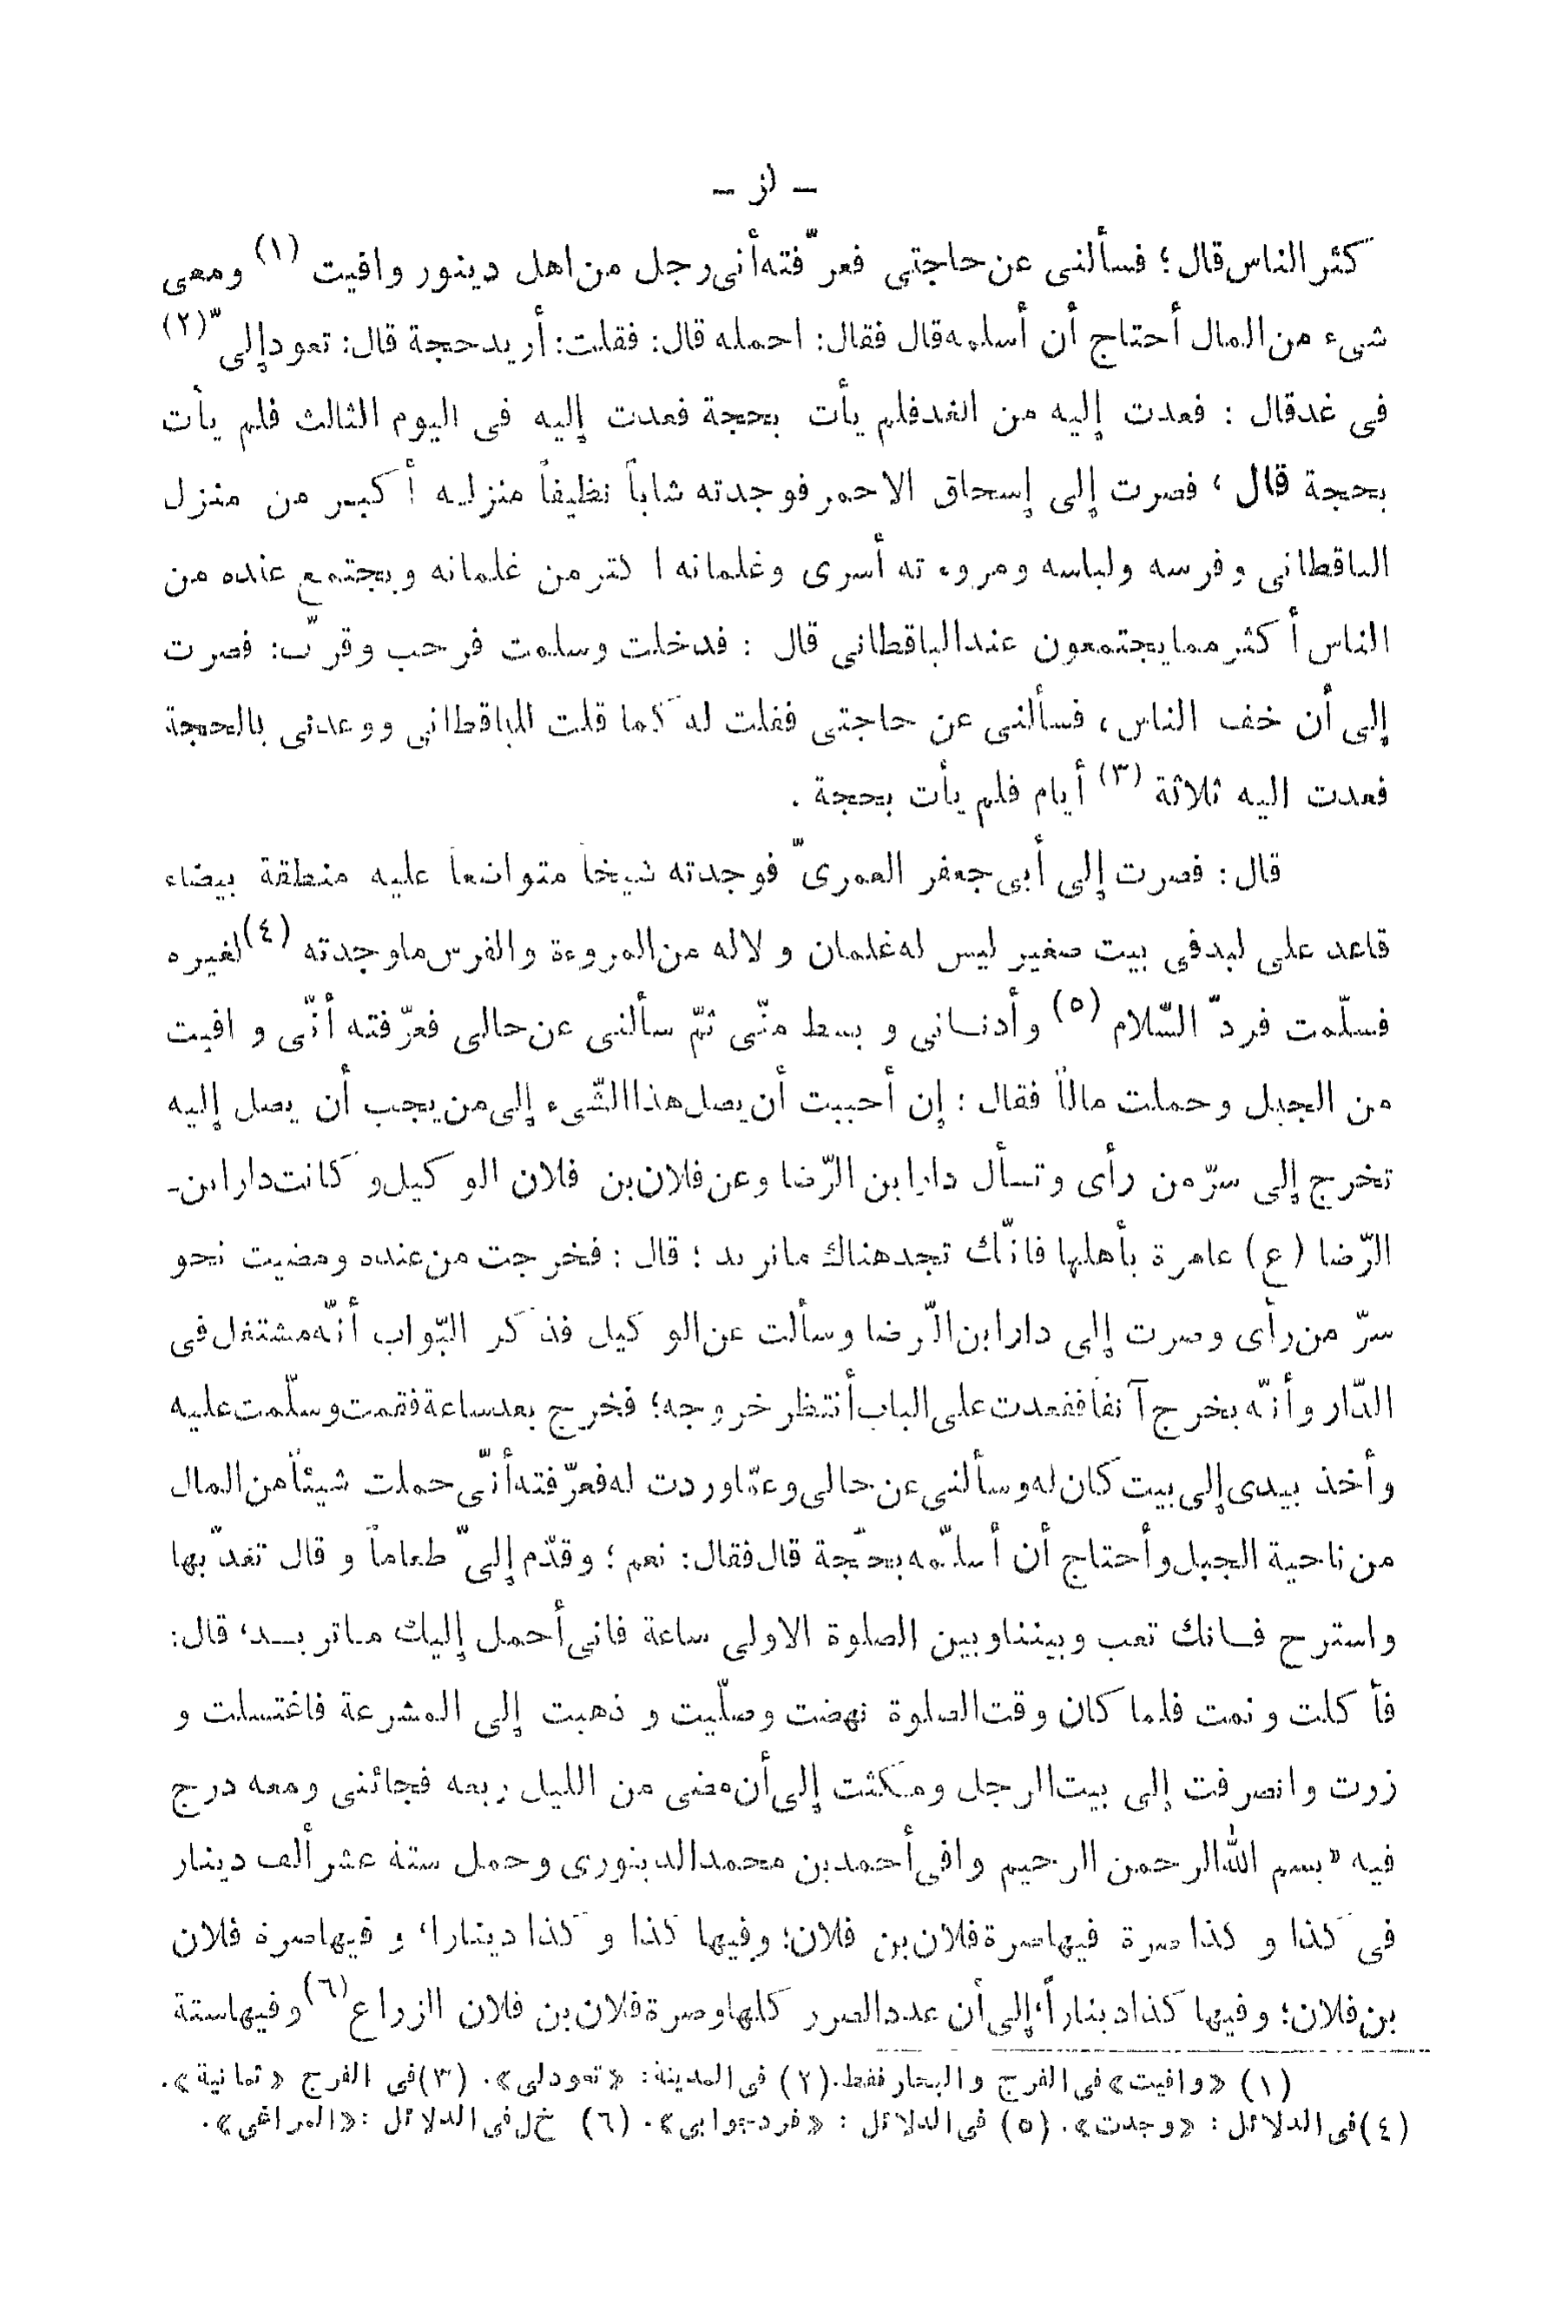 - لز -
كثر الناس قال؛ فسألنى عن حاجتى فعرّفته أنى رجل من اهل دينور وافيت (١) ومعى
شىء من المال أحتاج أن أسلمه قال فقال: احمله قال: فقلت: أريد حجة قال: تعود إلىّ (٢)
فى غد قال : فعدت إليه من الغد فلم يأت بحجة فعدت إليه فى اليوم الثالث فلم يأت
بحجة قال ، فصرت إلى إسحاق الاحمر فوجدته شاباً نظيفاً منزله أكبر من منزل
الباقطانى وفرسه ولباسه ومروءته أسرى وغلمانه اكثر من غلمانه ويجتمع عنده من
الناس أكثر مما يجتمعون عند الباقطانى قال : فدخلت وسلمت فرحب وقرّب: فصرت
إلى أن خف الناس، فسألنى عن حاجتى فقلت له كما قلت للباقطانى ووعدنى بالحجة
فعدت اليه ثلاثة (٣) أيام فلم يأت بحجة .
قال: فصرت إلى أبى جعفر العمرىّ فوجدته شيخاً متواضعاً عليه منطقة بيضاء
قاعد على لبد فى بيت صغير ليس له غلمان و لا له من المروءة والفرس ما وجدته (٤) لغيره
فسلّمت فردّ السّلام (٥) وأدنانى و بسط منّى ثمّ سألنى عن حالى فعرّفته أنّى و افيت
من الجبل وحملت مالاً فقال : إن أحببت أن يصل هذا الشّىء إلى من يجب أن يصل إليه
تخرج إلى سرّ من رأى وتسأل دار ابن الرّضا وعن فلان بن فلان الوكيل و كانت دار ابن-
الرّضا (ع) عامرة بأهلها فانّك تجد هناك ما تريد ؛ قال : فخرجت من عنده ومضيت نحو
سرّ من رأى وصرت إلى دار ابن الرّضا وسألت عن الوكيل فذكر البّواب أنّه مشتغل فى
الدّار وأنّه يخرج آنفاً فقعدت على الباب أنتظر خروجه؛ فخرج بعد ساعة فقمت وسلّمت عليه
وأخذ بيدى إلى بيت كان له وسألنى عن حالى وعمّا وردت له فعرّفته أنّى حملت شيئاً من المال
من ناحية الجبل وأحتاج أن أسلّمه بحّجة قال فقال: نعم ؛ وقدّم إلىّ طعاماً و قال تغدّ بها
واسترح فانك تعب وبيننا وبين الصلوة الاولى ساعة فانى أحمل إليك ما تريد، قال:
فأكلت ونمت فلما كان وقت الصلوة نهضت وصلّيت و ذهبت إلى المشرعة فاغتسلت و
زرت وانصرفت إلى بيت الرجل ومكثت إلى أن مضى من الليل ربعه فجائنى ومعه درج
فيه « بسم الله الرحمن الرحيم وافى أحمد بن محمد الدينورى وحمل ستة عشر ألف دينار
فى كذا و كذا صرة فيها صرة فلان بن فلان؛ وفيها كذا و كذا دينارا، و فيها صرة فلان
بن فلان؛ وفيها كذا ديناراً، إلى أن عدد الصرر كلها وصرة فلان بن فلان الزراع (٦) وفيها ستة
(١) «وافيت» فى الفرج والبحار فقط. (٢) فى المدينة: «تعود لى». (٣) فى الفرج «ثمانية».
(٤) فى الدلائل : «وجدت». (٥) فى الدلائل : «فرد جوابى». (٦) خ ل فى الدلائل :«المراغى».